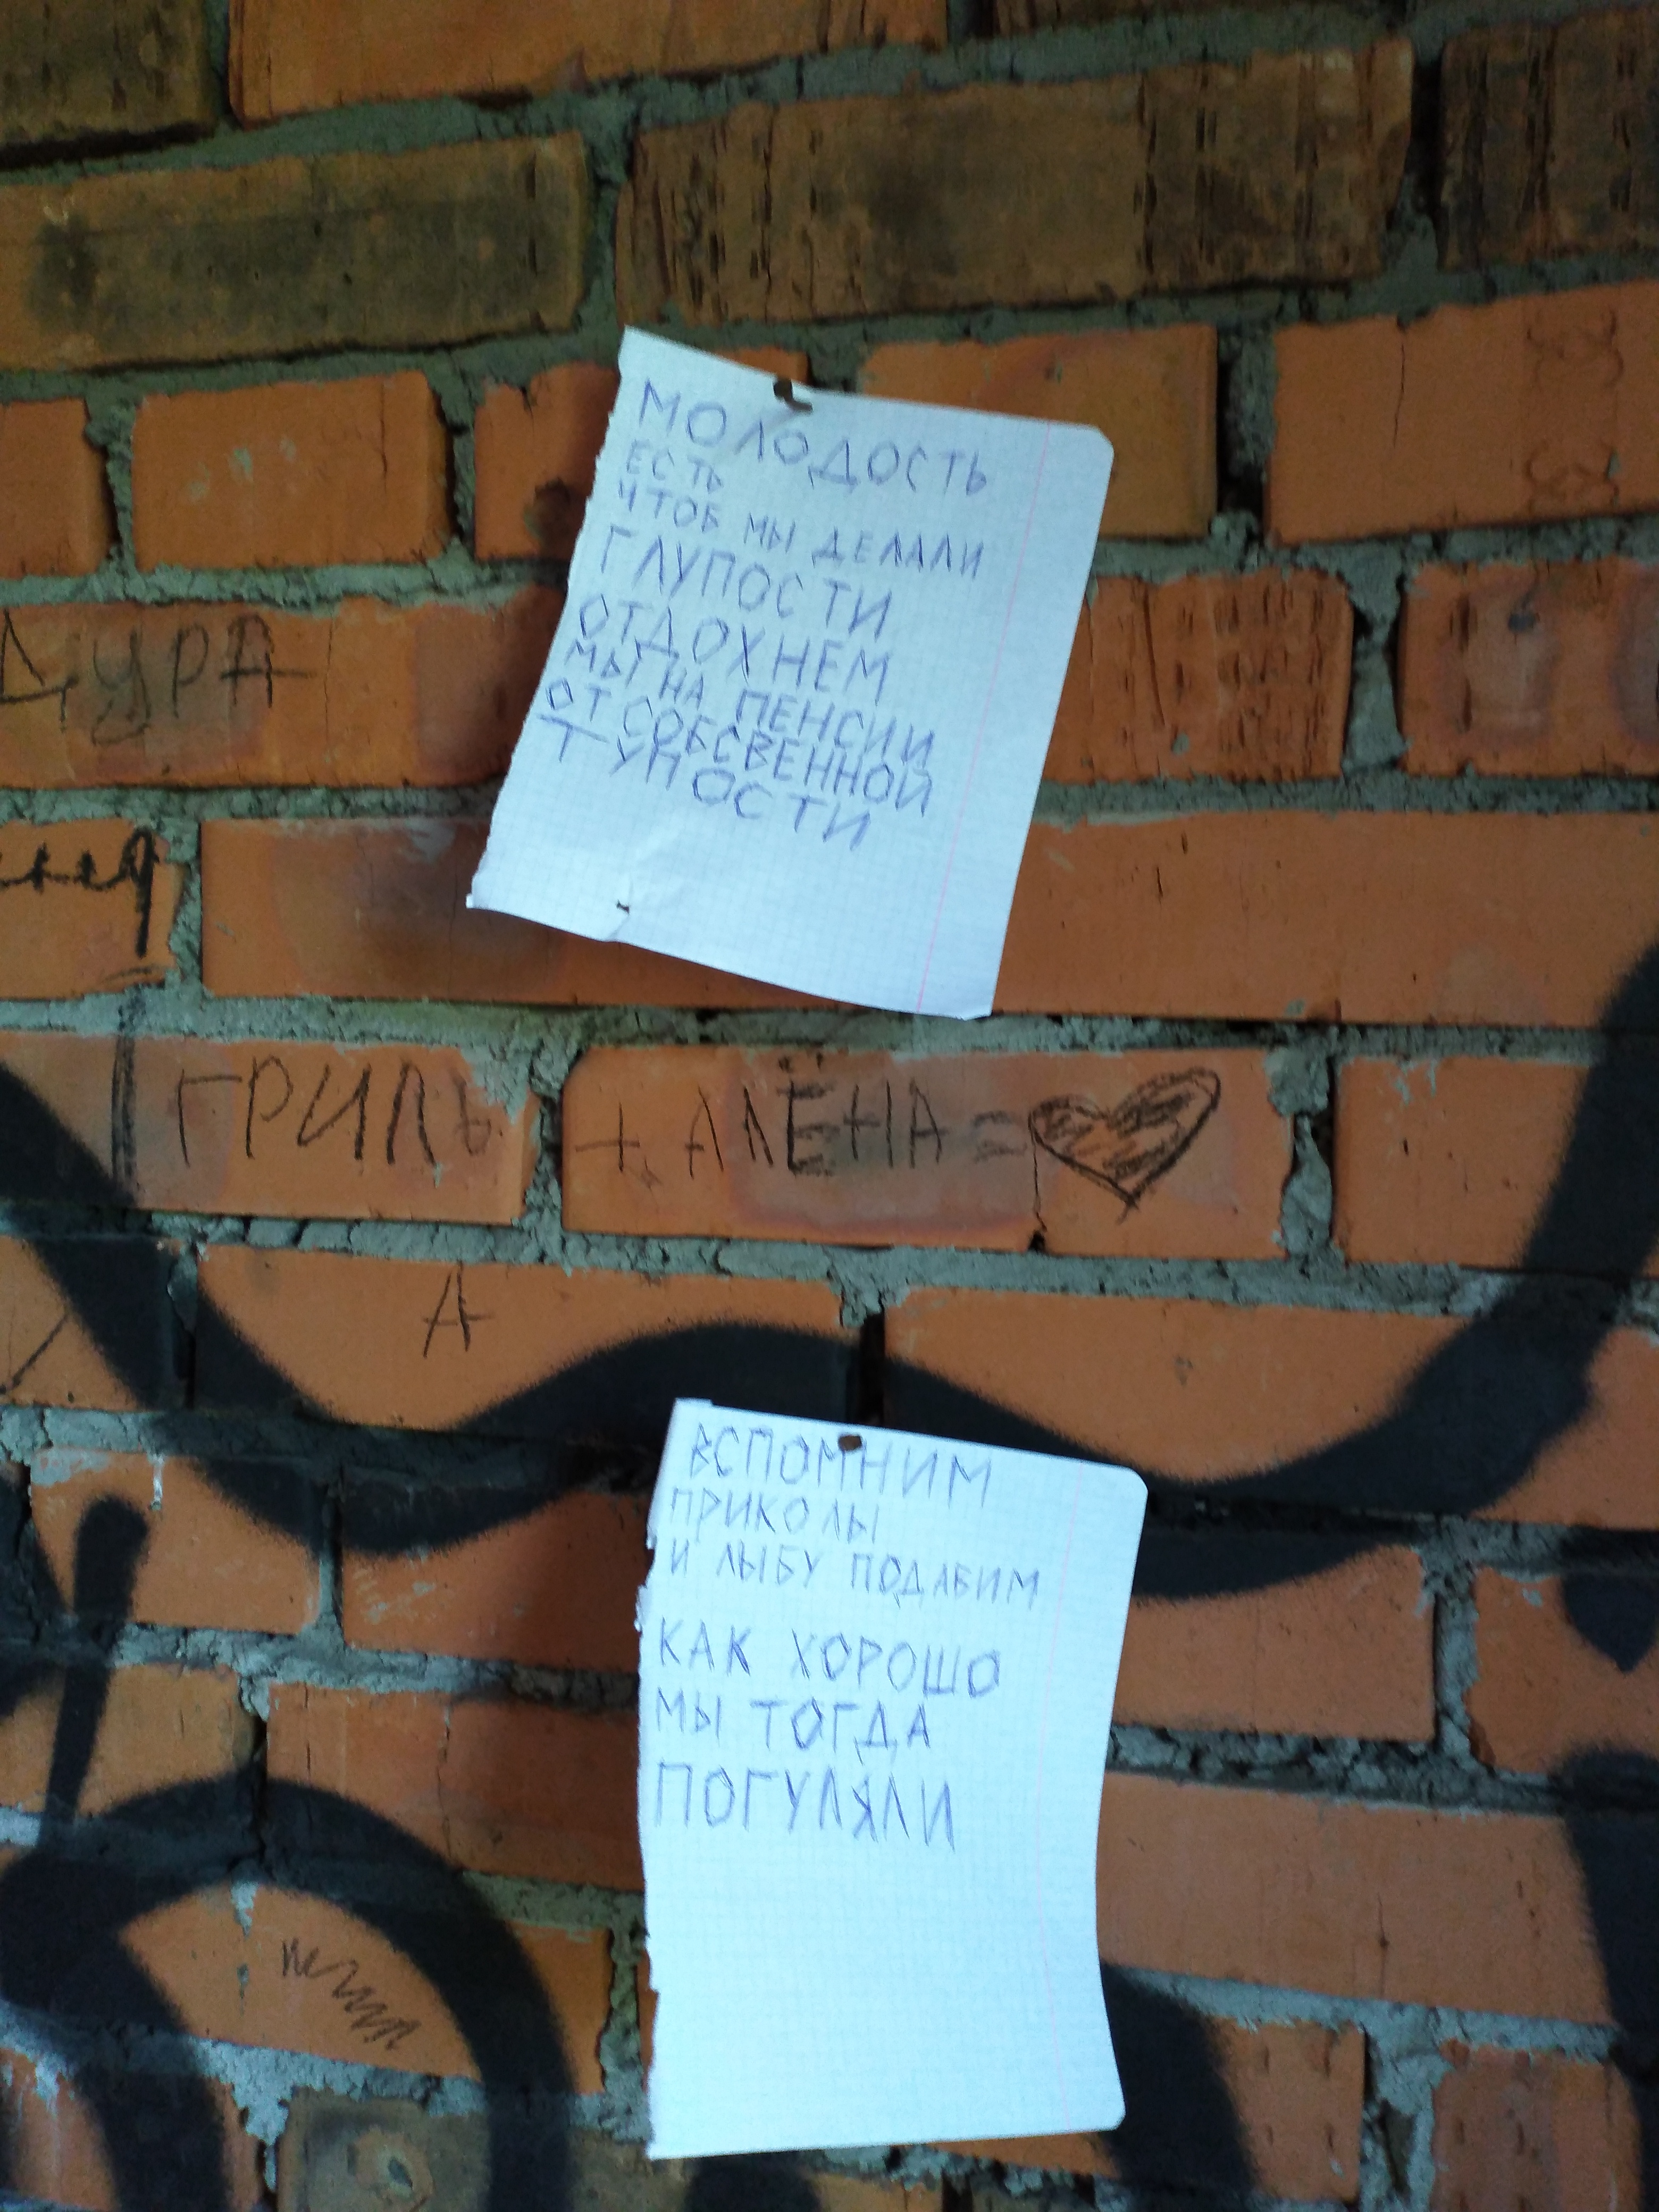 МОЛОДОСТЬ
ЕСТЬ
ЧТОБ МЫ ДЕЛАЛИ
ГЛУПОСТИ
ОТДОХНЕМ
МЫ НА ПЕНСИИ
ОТ СОБСВЕННОЙ
ТУПОСТИ
ДУРА
ГРИЛЬ + АЛЁНА =
А
ВСПОМНИМ
ПРИКОЛЫ
И ЛЫБУ ПОДАВИМ
КАК ХОРОШО
МЫ ТОГДА
ПОГУЛЯЛИ